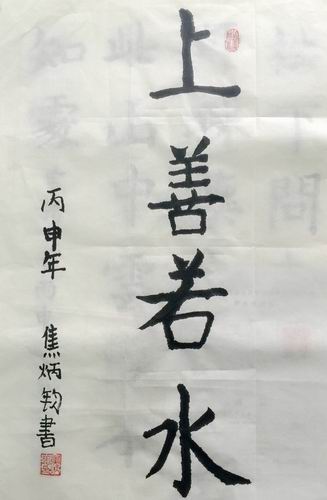 上善若水
丙申年 焦炳钧書